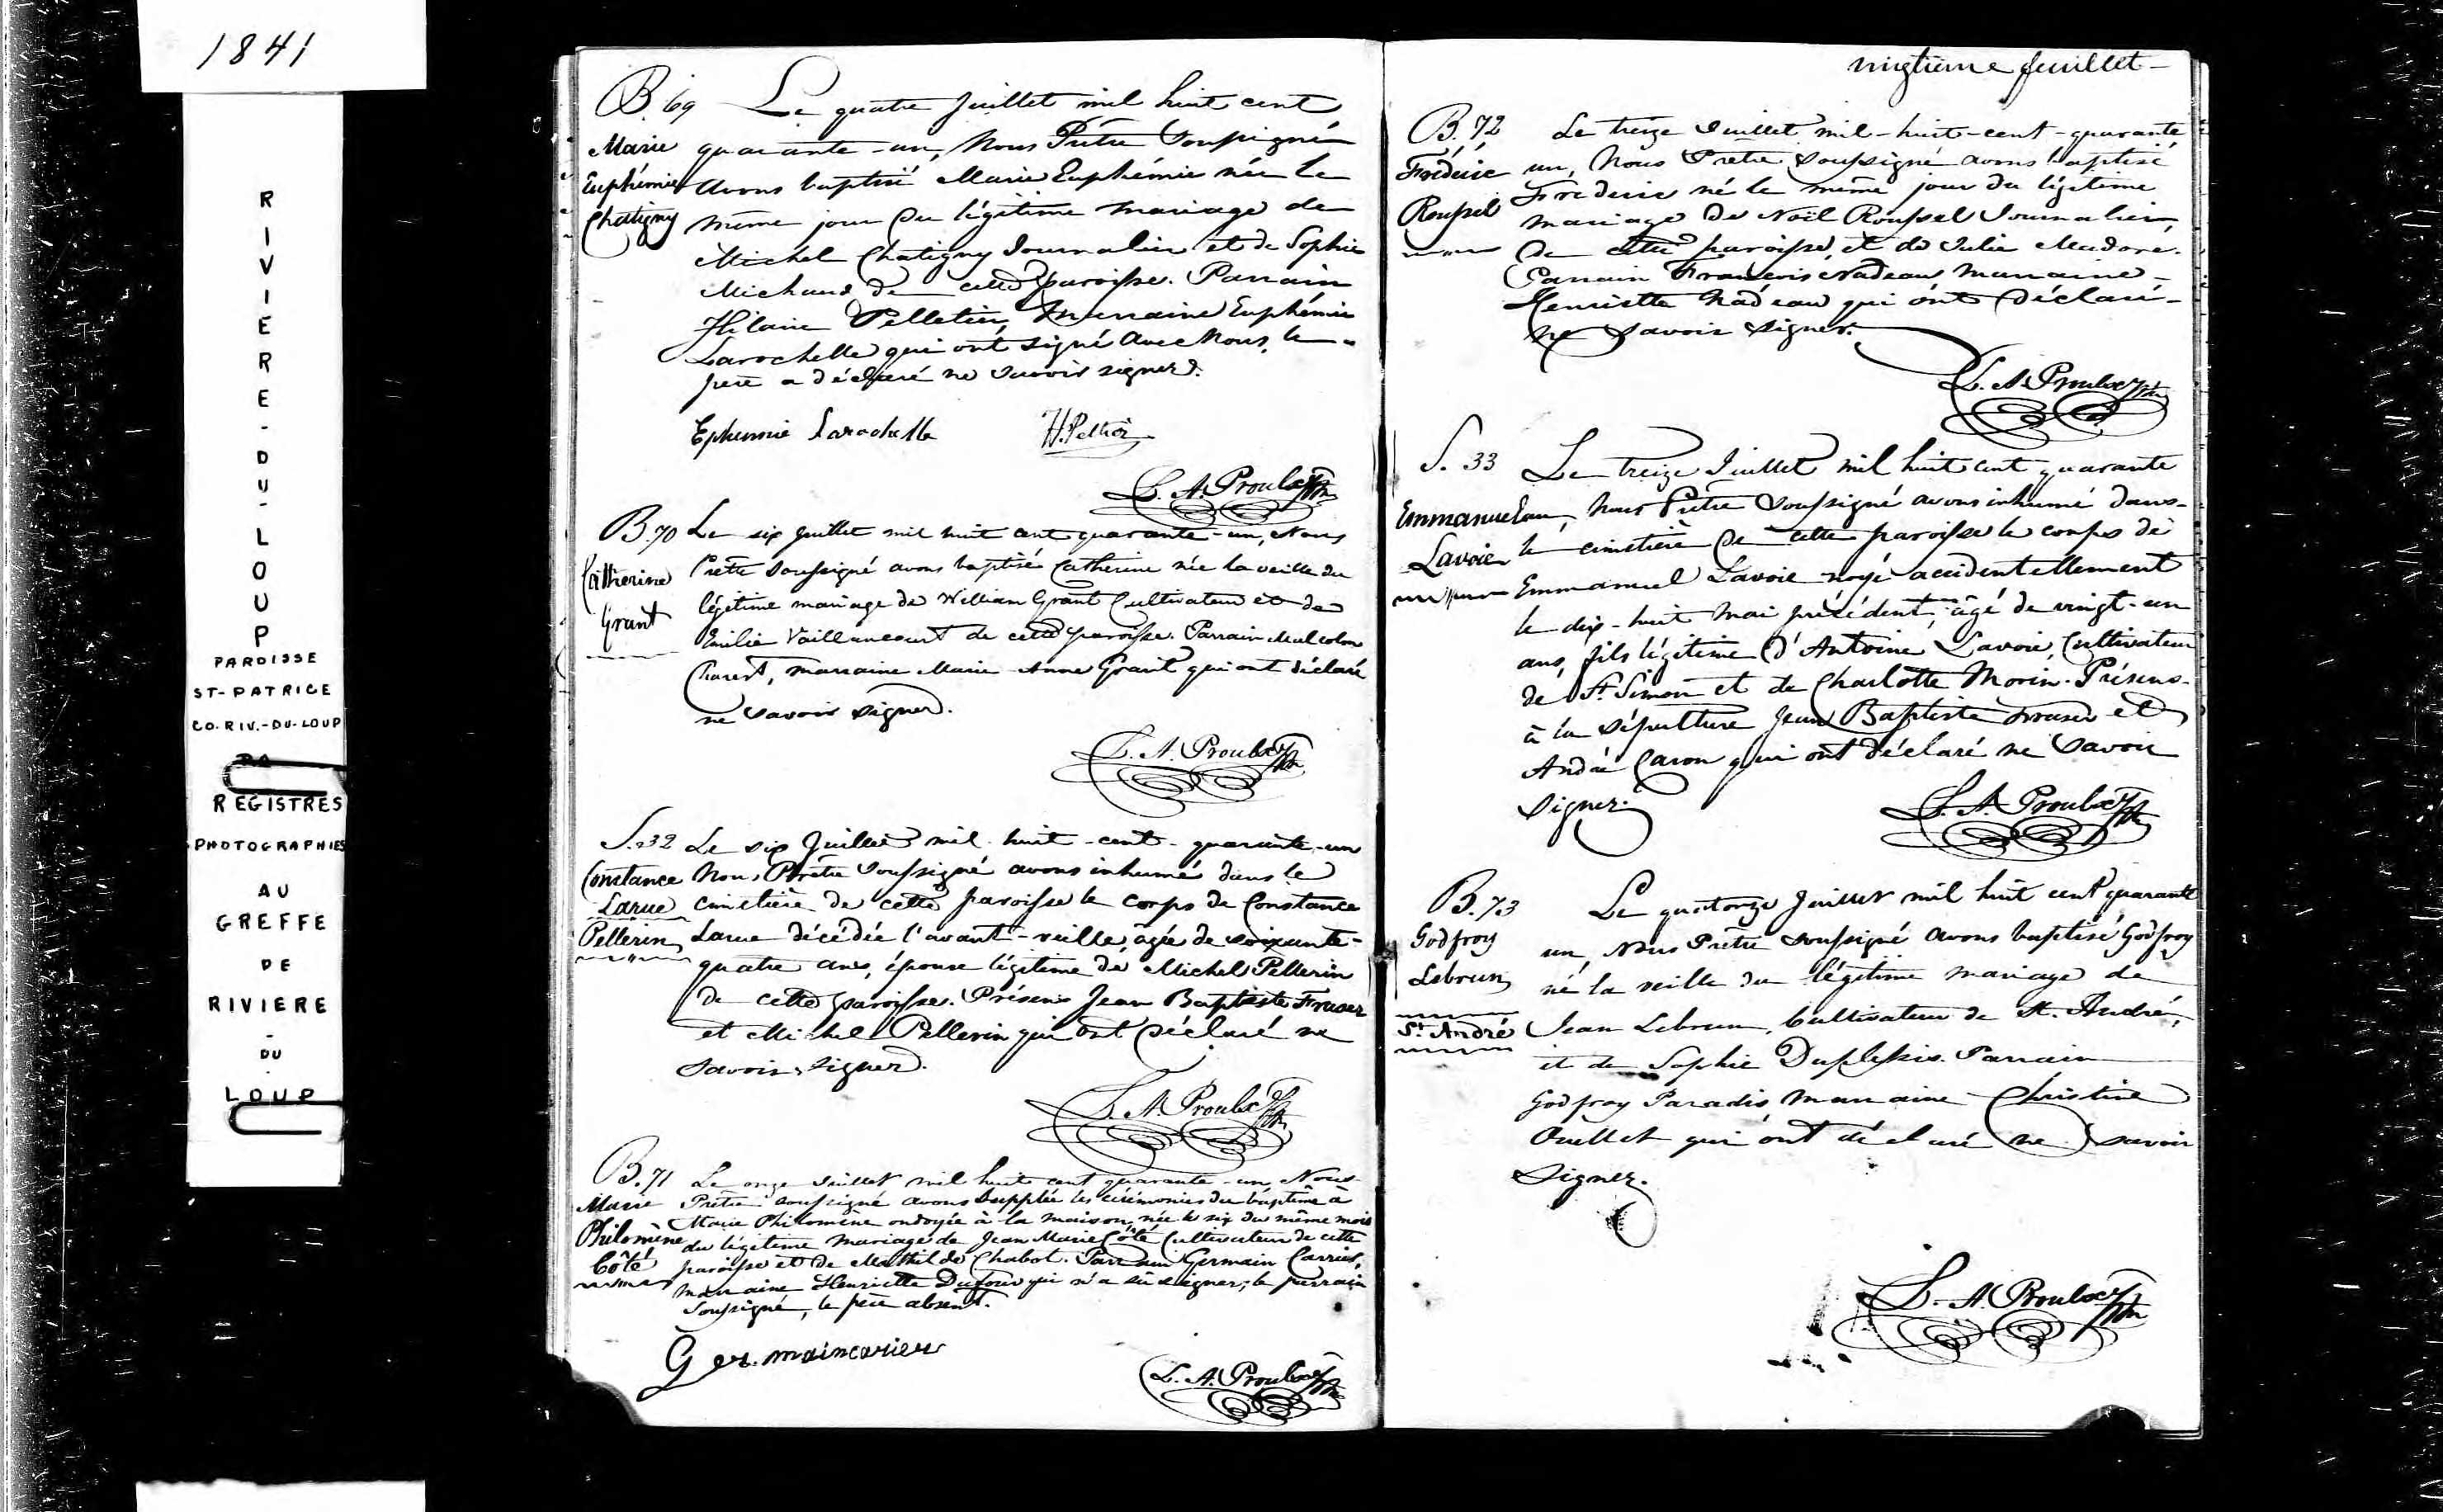 1841
RIVIERE-DU-LOUP
PAROISSE
ST-PATRICE
CO. RIV.-DU-LOUP
REGISTRES
PHOTOGRAPHIES
AU
GREFFE
DE
RIVIERE
-
DU
-
LOUP
B. 69 Le quatre Juillet mil huit cent
Marie quarante-un, Nous Prêtre Soussigné
Euphémie avons baptisé Marie Euphémie née le
Chatigny même jour du légitime mariage de
Michel Chatigny Journalier et de Sophie
Michaud de cette paroisse. Parrain
Hilaire Pelletier, Marraine Euphémie
Larochelle qui ont signé avec Nous, le
père a déclaré ne savoir signer.
Ephemie Larochelle H. Peltier
L. A. Proulx Ptre
B. 70 Le six Juillet mil huit cent quarante-un, Nous
Catherine Prêtre soussigné avons baptisé Catherine née la veille du
Grant légitime mariage de William Grant Cultivateur et de
Emilie Vaillancourt de cette paroisse. Parrain Malcolm
Charest, marraine Marie Anne Grant qui ont déclaré
ne savoir signer.
L. A. Proulx Ptre
S. 32 Le six Juillet mil-huit-cent-quarante-un
Constance Nous Prêtre soussigné avons inhumé dans le
Larue cimetière de cette paroisse le corps de Constance
Pellerin Larue décédée l'avant-veille, âgée de soixante-
quatre ans, épouse légitime de Michel Pellerin
de cette paroisse. Présens Jean Baptiste Fraser
et Michel Pellerin qui ont déclaré ne
savoir signer.
L. A. Proulx Ptre
B. 71 Le onze Juillet mil huit cent quarante-un, Nous
Marie Prêtre soussigné avons supplée les cérémonies du baptême à
Philomène Marie Philomène ondoyée à la maison, née le six du même mois
Côté du légitime mariage de Jean Marie Côté Cultivateur de cette
paroisse et de Mathilde Chabot. Parrain Germain Carrier,
marraine Henriette Dufour qui n'a su signer, le parrain
Soussigné, le père absent.
Ger. maincarier
L. A. Proulx Ptre
vingtième feuillet-
B. 72 Le treize Juillet mil-huit-cent-quarante
Fréderic un, Nous Prêtre soussigné avons baptisé
Roussel Frederic né le même jour du légitime
mariage de Noël Roussel Journalier,
de cette paroisse, et de Julie Madore.
Parrain François Nadeau Marraine-
Henriette Nadeau qui ont déclaré-
ne savoir signer.
L. A. Proulx Ptre
S. 33 Le treize Juillet mil huit cent quarante
Emmanuel un, Nous Prêtre Soussigné avons inhumé dans-
Lavoie le cimetière de cette paroisse le corps de
Emmanuel Lavoie noyé accidentellement
le dix-huit mai précédent, âgé de vingt-un
ans, fils légitime d'Antoine Lavoie, Cultivateur
de St. Simon et de Charlotte Morin. Présens-
à la sépulture Jean Baptiste Fraser et
André Caron qui ont déclaré ne savoir
signer.
L. A. Proulx Ptre
B. 73 Le quatorze Juillet mil huit cent quarante
Godfroy un, Nous Prêtre soussigné avons baptisé Godfroy
Lebrun né la veille du légitime mariage de
St. André Jean Lebrun, Cultivateur de St. André,
et de Sophie Duplessis. Parrain
Godfroy Paradis Marraine Christine
Ouellet qui ont déclaré ne savoir
signer.
L. A. Proulx Ptre